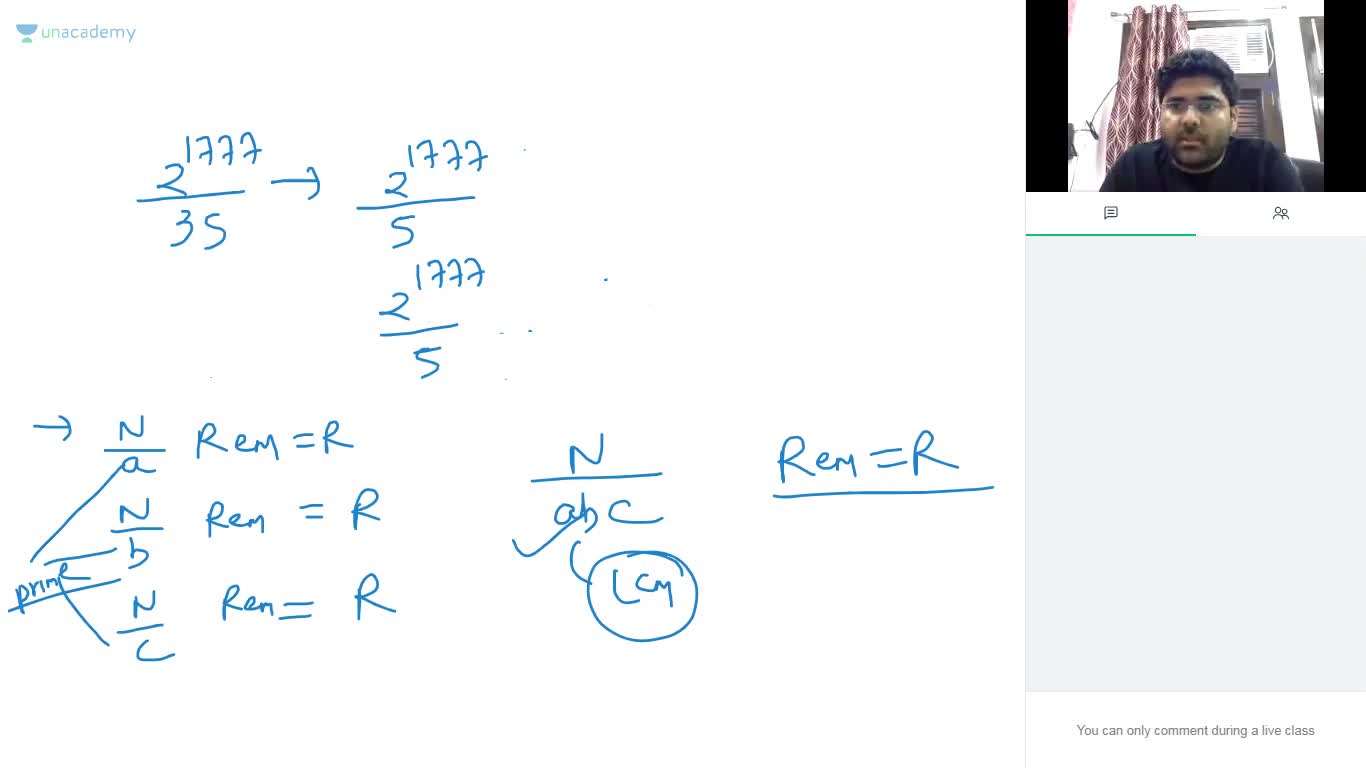 unacademy
2^1777 / 35 → 2^1777 / 5
2^1777 / 5
→ N / a Rem = R
N / b Rem = R
N / c Rem = R
prime
N / abc Rem = R
LCM
You can only comment during a live class